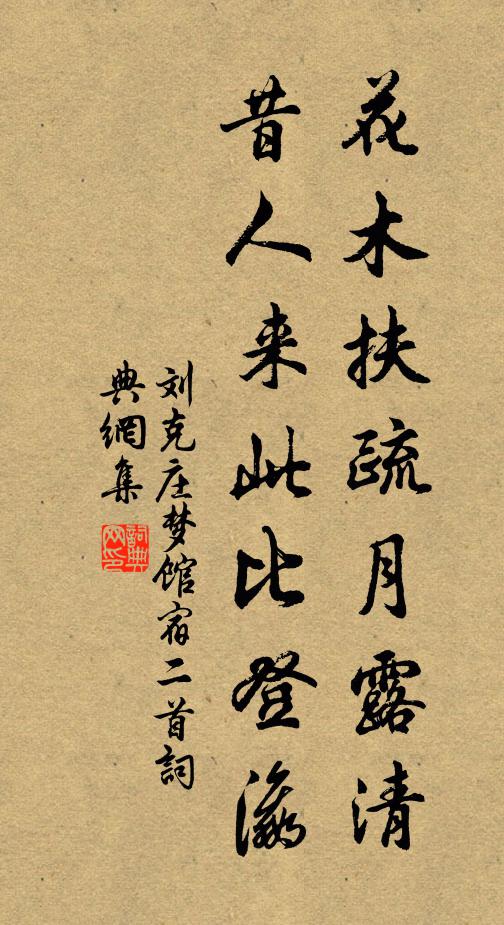 花木扶疏月露清
昔人来此比登瀛
刘克庄梦馆宿二首詞
典網集
詞典
网印